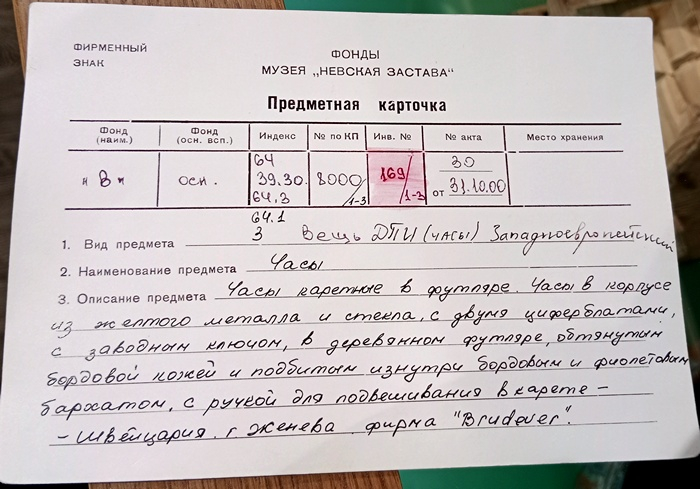 ФИРМЕННЫЙ
ЗНАК
ФОНДЫ
МУЗЕЯ „НЕВСКАЯ ЗАСТАВА“
Предметная карточка
Фонд (наим.) Фонд (осн. всп.) Индекс № по КП Инв. № № акта Место хранения
"В" осн. 64 39.30. 64.3 8000/1-3 169/1-3 30 от 31.10.00
64.1
3
1. Вид предмета Вещь ДПИ (часы) Западноевропейский
2. Наименование предмета Часы
3. Описание предмета Часы каретные в футляре. Часы в корпусе
из желтого металла и стекла, с двумя циферблатами,
с заводным ключом, в деревянном футляре, обтянутым
бордовой кожей и подбитым изнутри бордовым и фиолетовым
бархатом, с ручкой для подвешивания в карете –
– Швейцария. г. Женева фирма "Brudever".